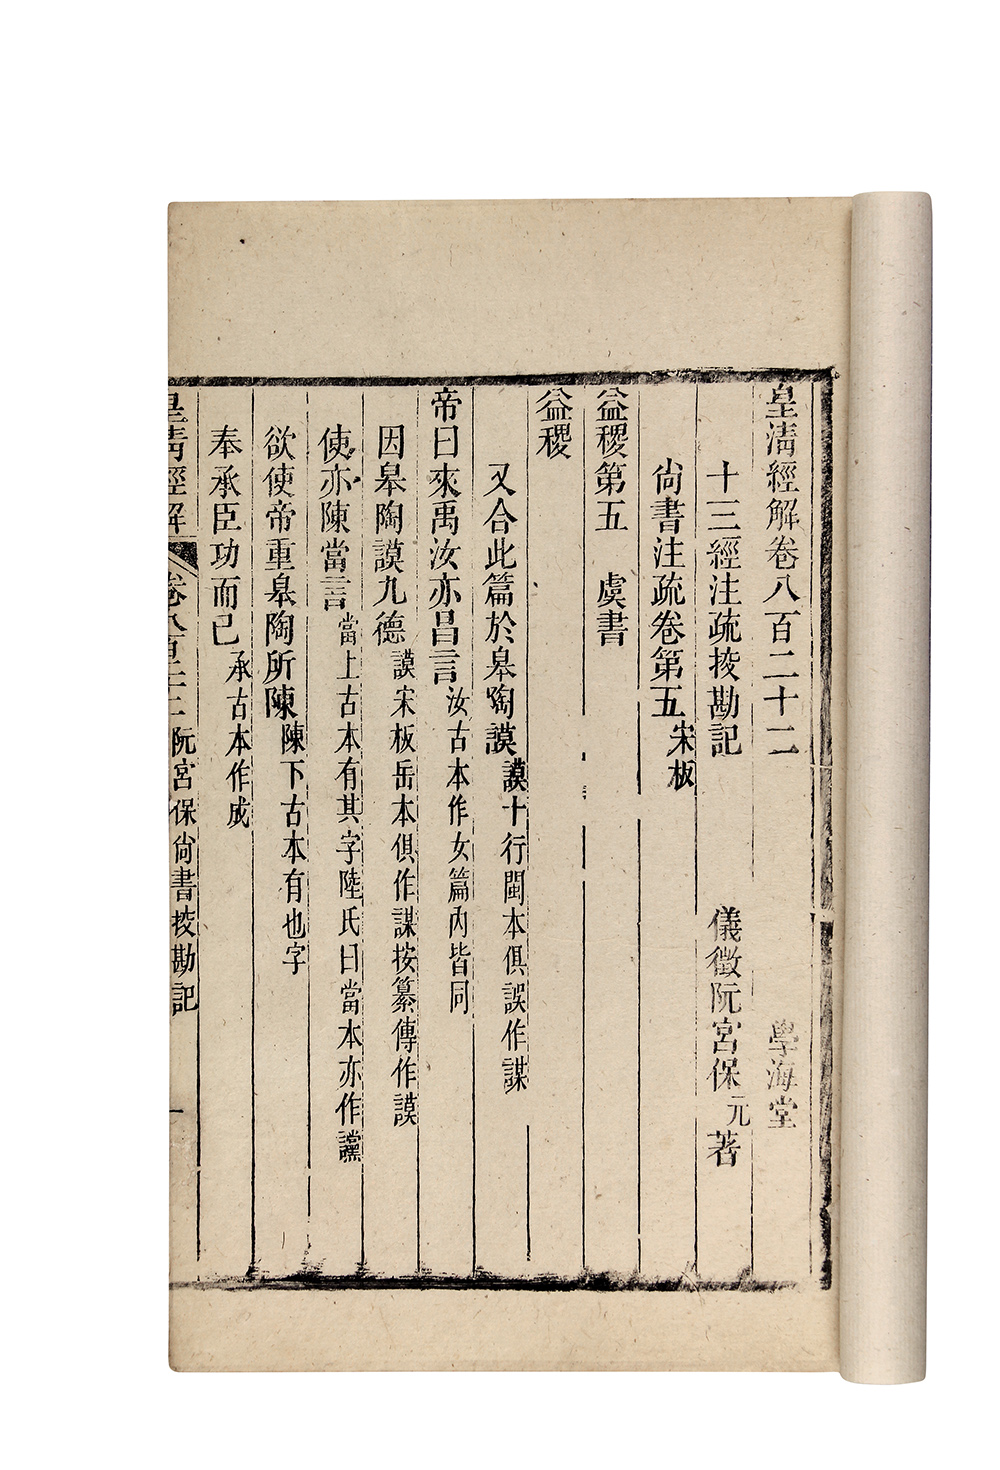 皇清經解卷八百二十二 學海堂
十三經注疏挍勘記 儀徵阮宮保元著
尙書注疏卷第五宋板
益稷第五 虞書
益稷
又合此篇於皋陶謨謨十行閩本俱誤作謀
帝曰來禹汝亦昌言汝古本作女篇內皆同
因皋陶謨九德謨宋板岳本俱作謀按纂傳作謨
使亦陳當言當上古本有其字陸氏曰當本亦作讜
欲使帝重皋陶所陳陳下古本有也字
奉承臣功而已承古本作成
皇清經解 卷八百二十二 阮宮保尙書挍勘記 一